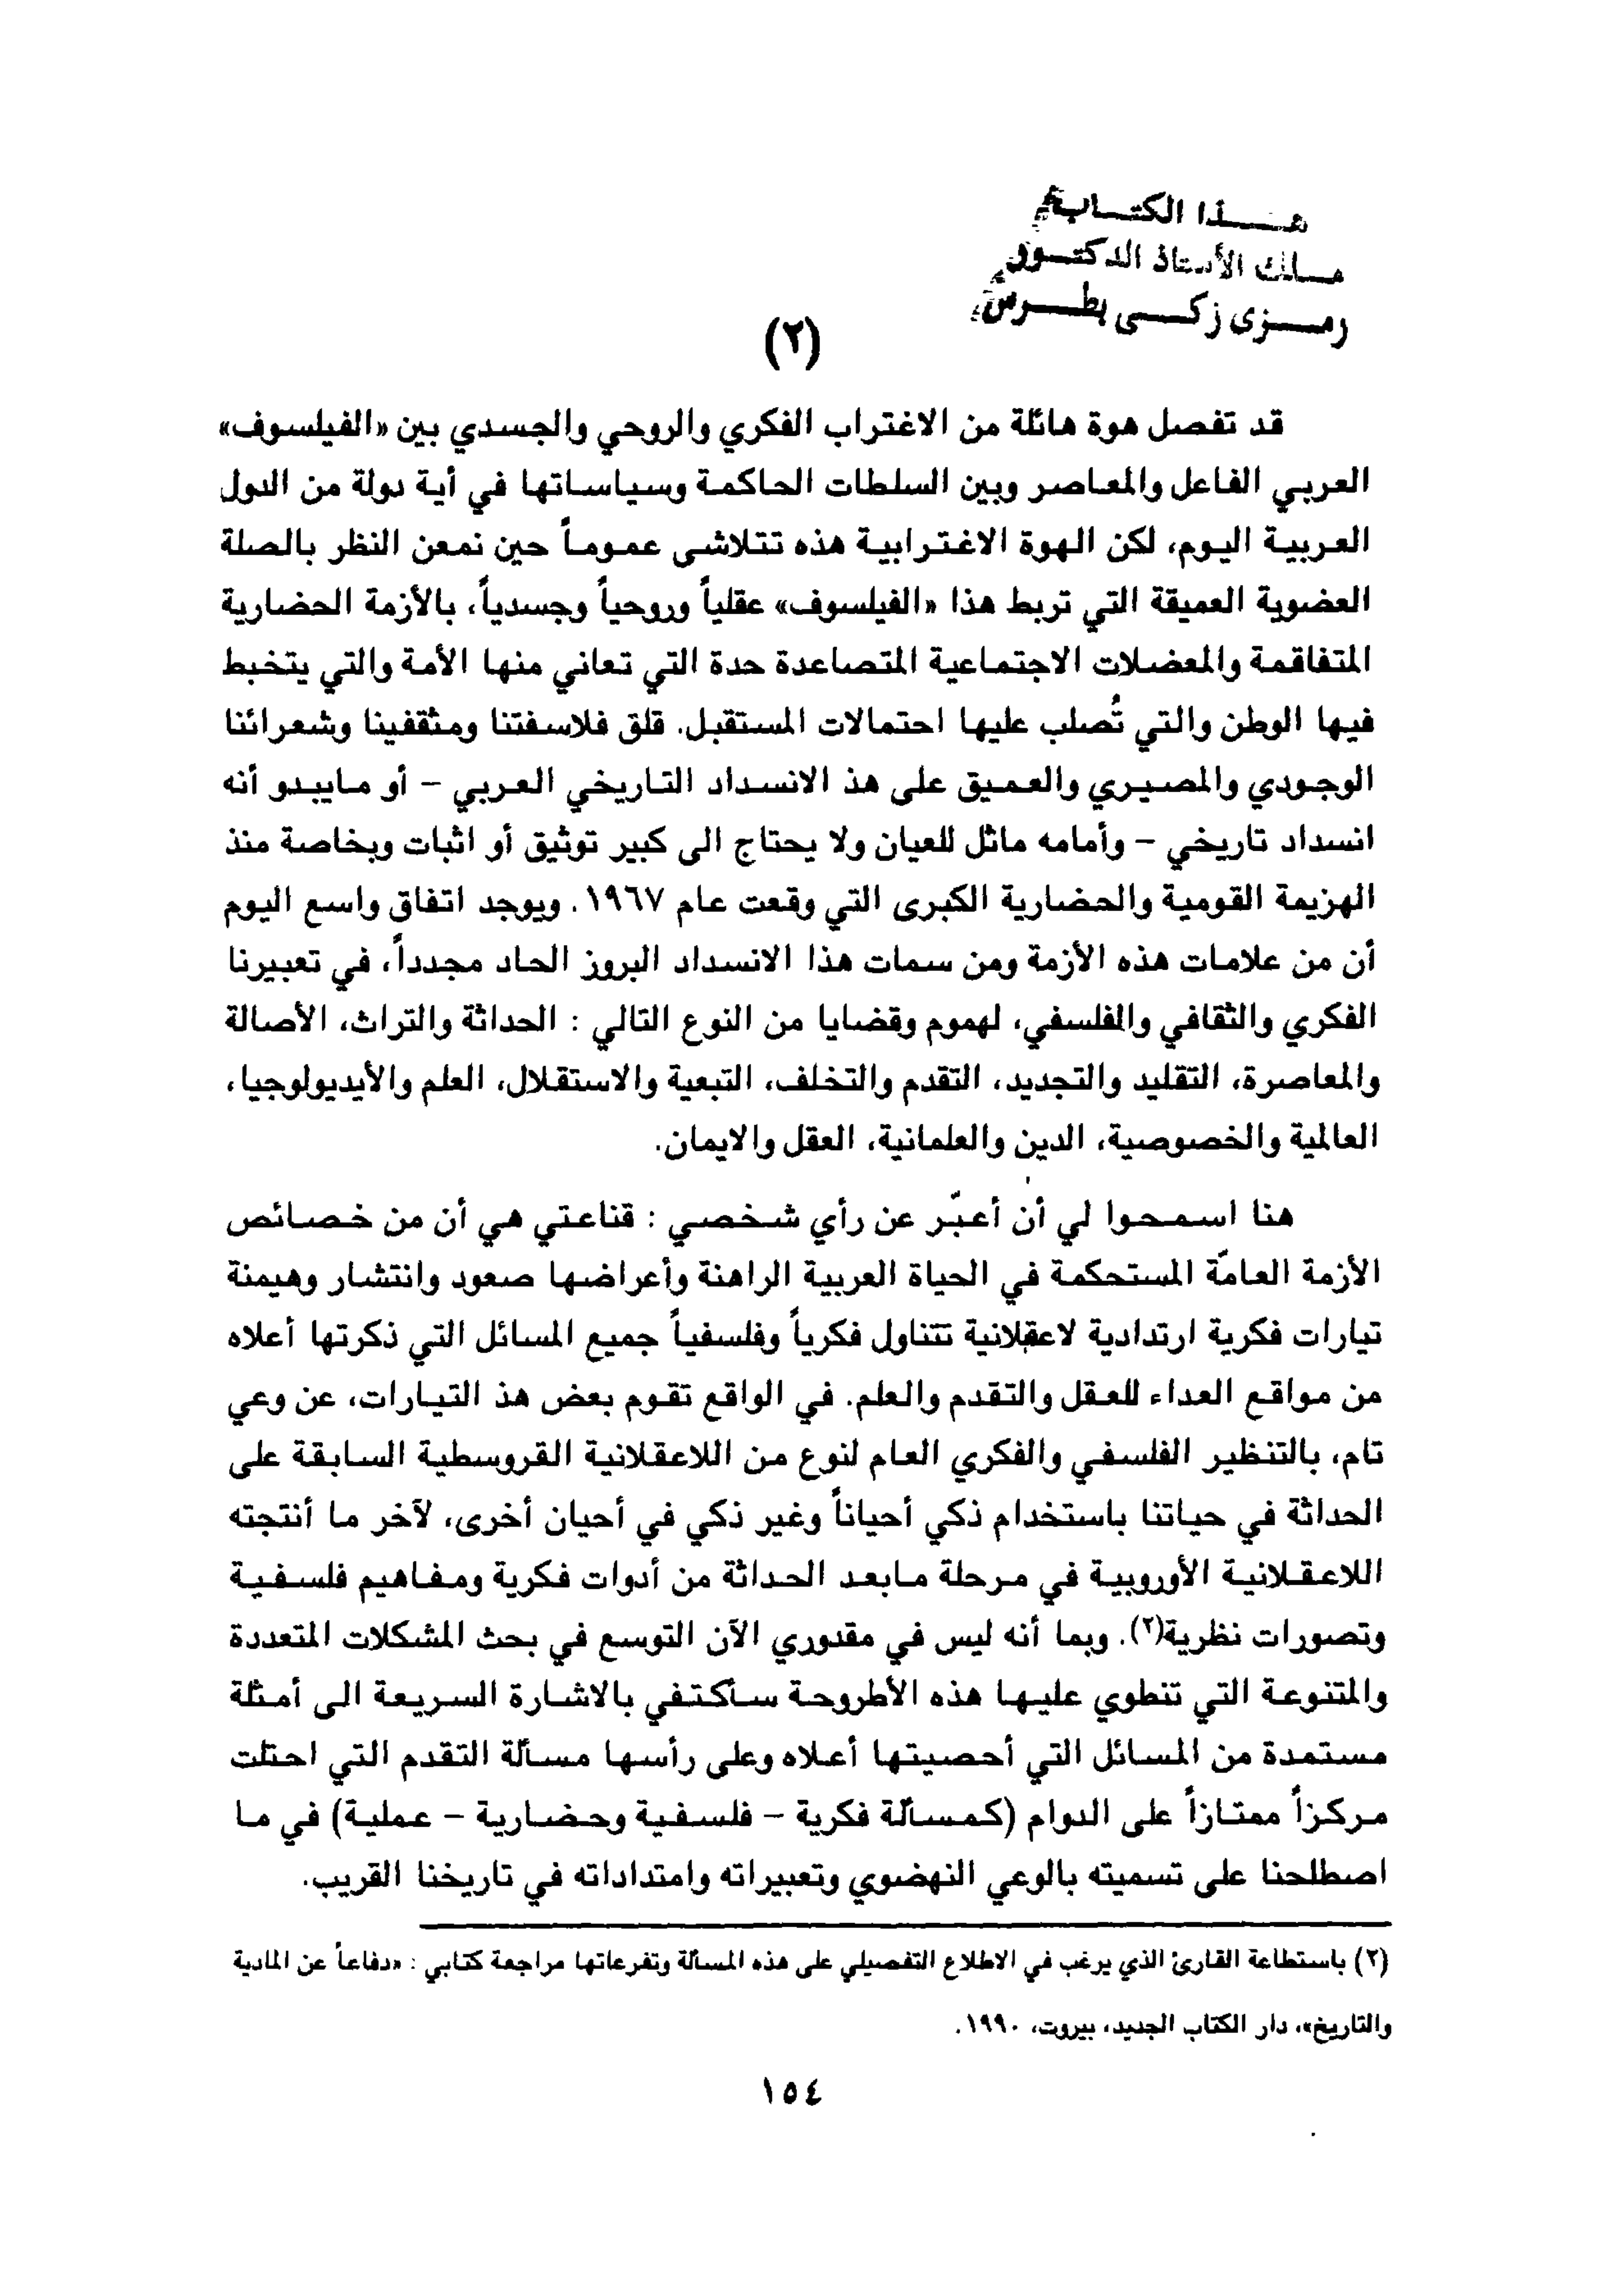 هذا الكتاب
ملك الأستاذ الدكتور
رمزى زكى بطرس
(٢)
قد تفصل هوة هائلة من الاغتراب الفكري والروحي والجسدي بين «الفيلسوف»
العربي الفاعل والمعاصر وبين السلطات الحاكمة وسياساتها في أية دولة من الدول
العربية اليوم، لكن الهوة الاغترابية هذه تتلاشى عموماً حين نمعن النظر بالصلة
العضوية العميقة التي تربط هذا «الفيلسوف» عقلياً وروحياً وجسدياً، بالأزمة الحضارية
المتفاقمة والمعضلات الاجتماعية المتصاعدة حدة التي تعاني منها الأمة والتي يتخبط
فيها الوطن والتي تُصلب عليها احتمالات المستقبل. قلق فلاسفتنا ومثقفينا وشعرائنا
الوجودي والمصيري والعميق على هذ الانسداد التاريخي العربي – أو مايبدو أنه
انسداد تاريخي – وأمامه ماثل للعيان ولا يحتاج الى كبير توثيق أو اثبات وبخاصة منذ
الهزيمة القومية والحضارية الكبرى التي وقعت عام ١٩٦٧. ويوجد اتفاق واسع اليوم
أن من علامات هذه الأزمة ومن سمات هذا الانسداد البروز الحاد مجدداً، في تعبيرنا
الفكري والثقافي والفلسفي، لهموم وقضايا من النوع التالي : الحداثة والتراث، الأصالة
والمعاصرة، التقليد والتجديد، التقدم والتخلف، التبعية والاستقلال، العلم والأيديولوجيا،
العالمية والخصوصية، الدين والعلمانية، العقل والايمان.
هنا اسمحوا لي أن أعبّر عن رأي شخصي : قناعتي هي أن من خصائص
الأزمة العامّة المستحكمة في الحياة العربية الراهنة وأعراضها صعود وانتشار وهيمنة
تيارات فكرية ارتدادية لاعقلانية تتناول فكرياً وفلسفياً جميع المسائل التي ذكرتها أعلاه
من مواقع العداء للعقل والتقدم والعلم. في الواقع تقوم بعض هذ التيارات، عن وعي
تام، بالتنظير الفلسفي والفكري العام لنوع من اللاعقلانية القروسطية السابقة على
الحداثة في حياتنا باستخدام ذكي أحياناً وغير ذكي في أحيان أخرى، لآخر ما أنتجته
اللاعقلانية الأوروبية في مرحلة مابعد الحداثة من أدوات فكرية ومفاهيم فلسفية
وتصورات نظرية(٢). وبما أنه ليس في مقدوري الآن التوسع في بحث المشكلات المتعددة
والمتنوعة التي تنطوي عليها هذه الأطروحة سأكتفي بالاشارة السريعة الى أمثلة
مستمدة من المسائل التي أحصيتها أعلاه وعلى رأسها مسألة التقدم التي احتلت
مركزاً ممتازاً على الدوام (كمسألة فكرية – فلسفية وحضارية – عملية) في ما
اصطلحنا على تسميته بالوعي النهضوي وتعبيراته وامتداداته في تاريخنا القريب.
(٢) باستطاعة القارئ الذي يرغب في الاطلاع التفصيلي على هذه المسألة وتفرعاتها مراجعة كتابي : «دفاعاً عن المادية
والتاريخ»، دار الكتاب الجديد، بيروت، ١٩٩٠.
١٥٤